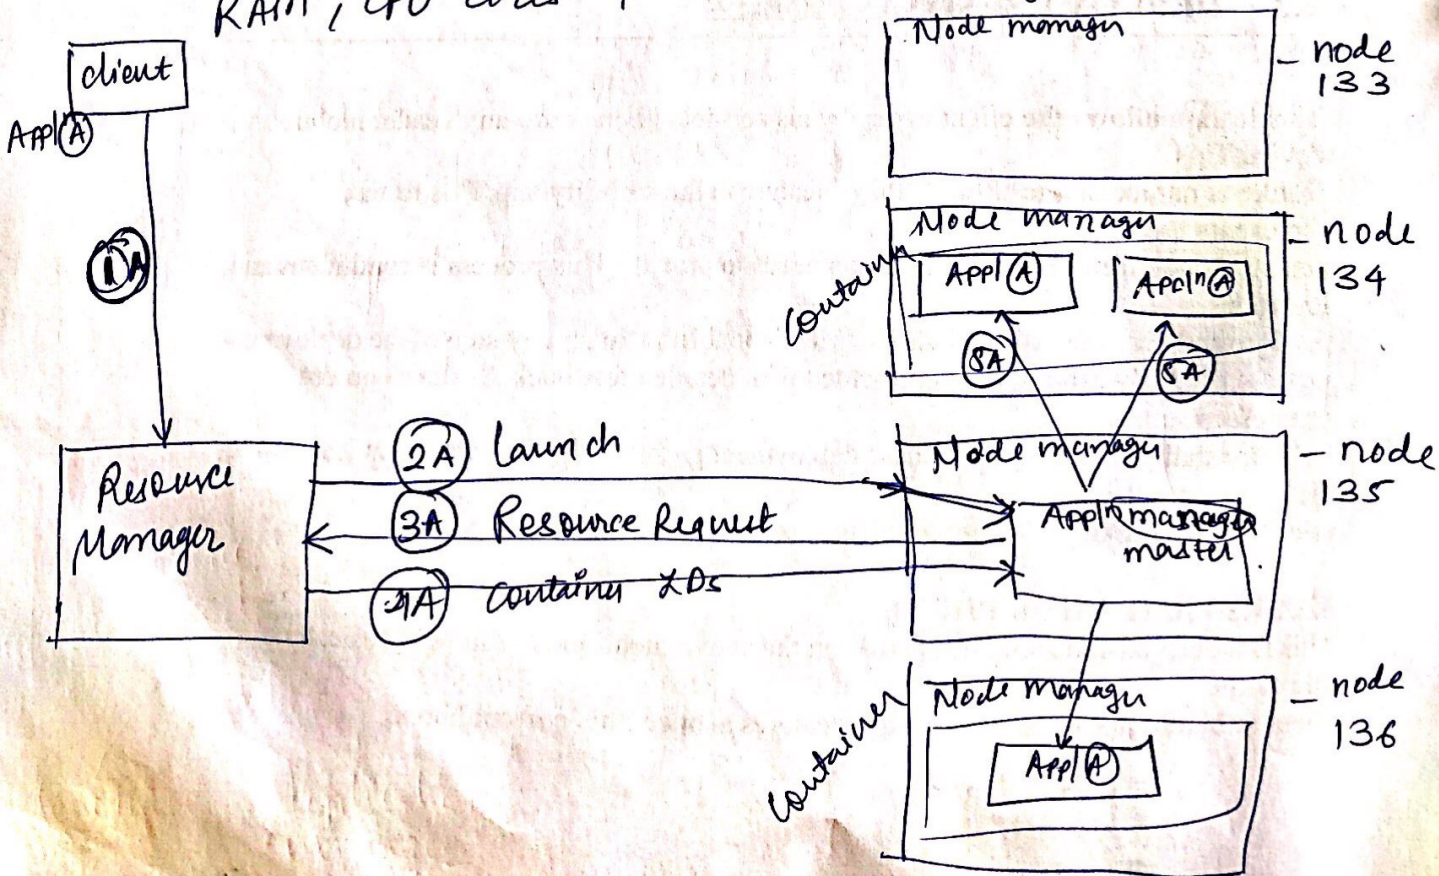 RAM, CPU cores
client
Appl(A)
1A
Resource
Manager
2A Launch
3A Resource Request
4A Container IDs
Node manager
- node
133
Node manager
- node
134
Container
Appl(A)
Appln(A)
5A
5A
Node manager
- node
135
Appln manager
master
Node manager
- node
136
Container
Appl(A)